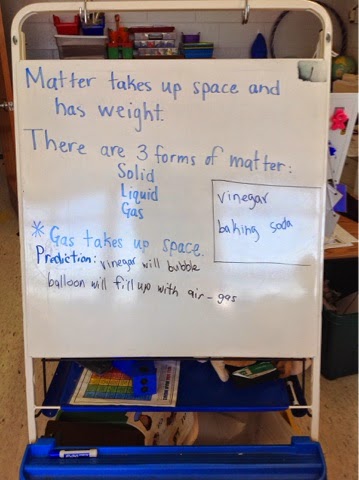 Matter takes up space and
has weight.
There are 3 forms of matter:
Solid
Liquid
Gas
vinegar
baking soda
* Gas takes up space.
Prediction: vinegar will bubble
balloon will fill up with air-gas